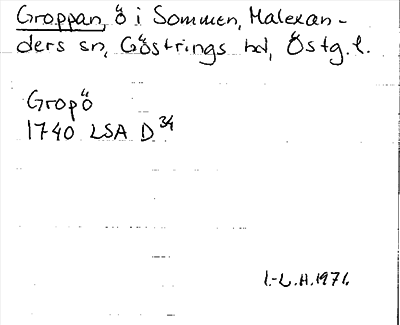 Groppan, ö i Sommen, Malexan-
ders sn, Göstrings hd, Östg.l.
Gropö
1740 LSA D 34
l.-L.H.1971.